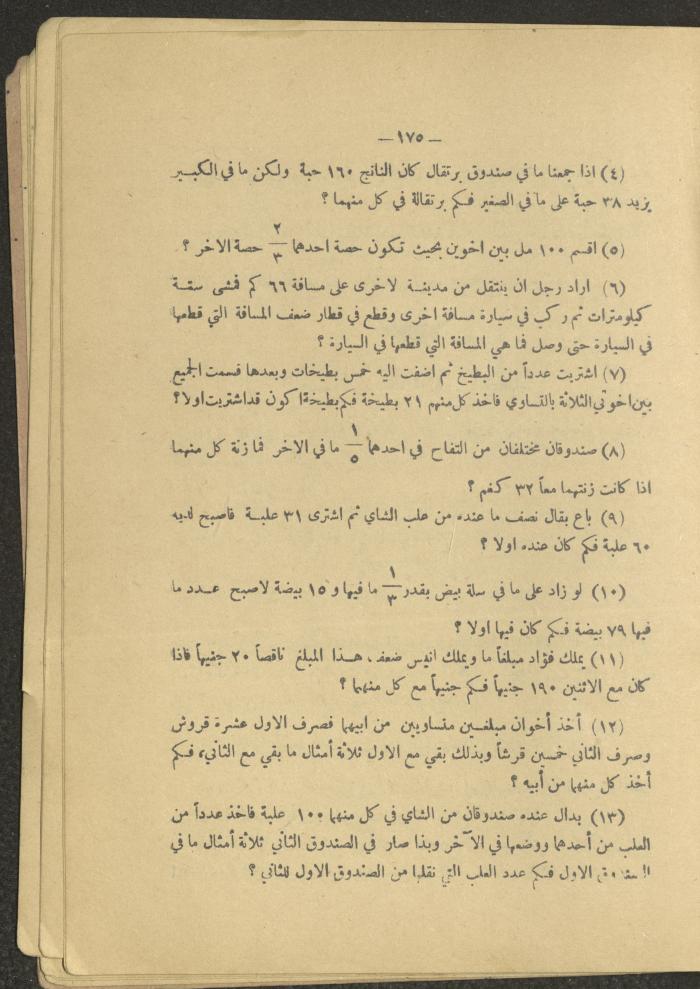 — ١٧٥ —
(٤) اذا جمعنا ما في صندوق برتقال كان الناتج ١٦٠ حبة ولكن ما في الكبير
يزيد ٣٨ حبة على ما في الصغير فكم برتقالة في كل منهما ؟
(٥) اقسم ١٠٠ مل بين اخوين بحيث تكون حصة احدهما ٢/٣ حصة الاخر ؟
(٦) اراد رجل ان ينتقل من مدينة لاخرى على مسافة ٦٦ كم فمشى ستة
كيلومترات ثم ركب في سيارة مسافة اخرى وقطع في قطار ضعف المسافة التي قطعها
في السيارة حتى وصل فما هي المسافة التي قطعها في السيارة ؟
(٧) اشتريت عدداً من البطيخ ثم اضفت اليه خمس بطيخات وبعدها قسمت الجميع
بين اخوتي الثلاثة بالتساوي فاخذ كل منهم ٢١ بطيخة فكم بطيخة اكون قد اشتريت اولا ؟
(٨) صندوقان مختلفان من التفاح في احدهما ١/٥ ما في الاخر فما زنة كل منهما
اذا كانت زنتهما معاً ٣٢ كغم ؟
(٩) باع بقال نصف ما عنده من علب الشاي ثم اشترى ٣١ علبة فاصبح لديه
٦٠ علبة فكم كان عنده اولا ؟
(١٠) لو زاد على ما في سلة بيض بقدر ١/٣ ما فيها و ١٥ بيضة لاصبح عدد ما
فيها ٧٩ بيضة فكم كان فيها اولا ؟
(١١) يملك فؤاد مبلغاً ما ويملك انيس ضعف هذا المبلغ ناقصاً ٢٠ جنيهاً فاذا
كان مع الاثنين ١٩٠ جنيهاً فكم جنيهاً مع كل منهما ؟
(١٢) أخذ أخوان مبلغين متساويين من ابيهما فصرف الاول عشرة قروش
وصرف الثاني خمسين قرشاً وبذلك بقي مع الاول ثلاثة أمثال ما بقي مع الثاني، فكم
أخذ كل منهما من أبيه ؟
(١٣) بدال عنده صندوقان من الشاي في كل منهما ١٠٠ علبة فاخذ عدداً من
العلب من أحدهما ووضعها في الآخر وبذا صار في الصندوق الثاني ثلاثة أمثال ما في
الصندوق الاول فكم عدد العلب التي نقلها من الصندوق الاول للثاني ؟